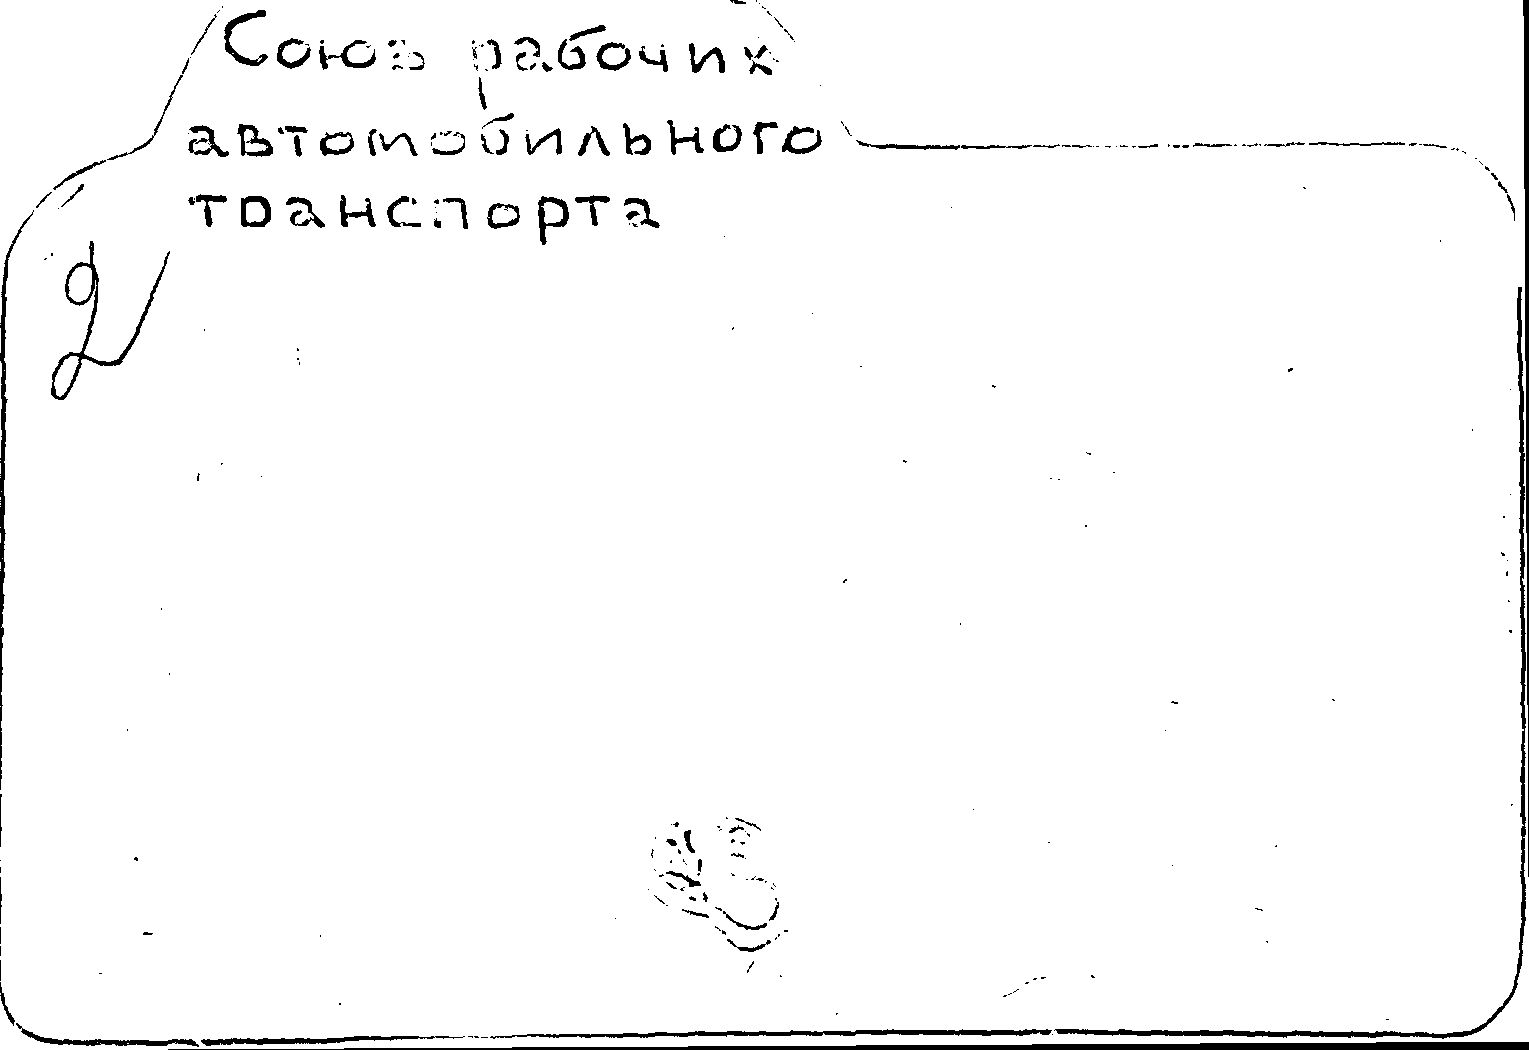 Союз рабочих
автомобильного
транспорта